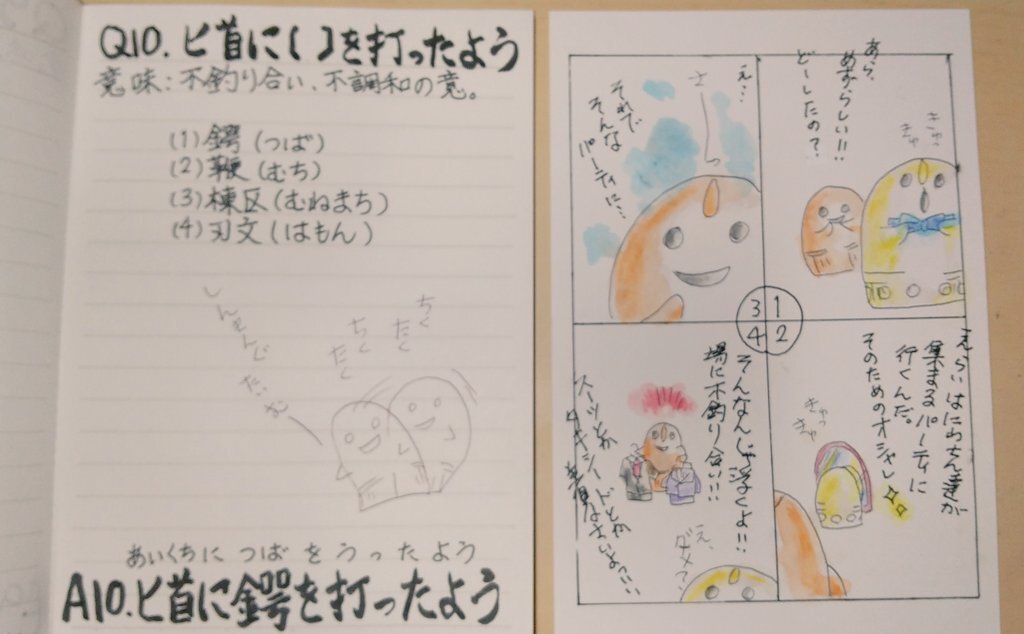 Q10. 匕首に【 】を打ったよう
意味：不釣り合い、不調和の意。
(1) 鍔 (つば)
(2) 鞭 (むち)
(3) 棟区 (むねまち)
(4) 刃文 (はもん)
しんきんぐ
たいむ
ちく
たく
ちく
たく
あいくちに つば を うった よう
A10. 匕首に鍔を打ったよう
あら、
めずらしい!!
どーしたの？
きゅっ
きゅ
1
えらいはにわさん達が
集まるパーティに
行くんだ。
そのためのオシャレ
きゅっ
きゅ
2
え…
それで
そんな
パーティに…
3
そんなんじゃ浮くよ!!
場に不釣り合い!!
スーツとか
タキシードとか
着なさいよっ!!
え、
ダメ？
4